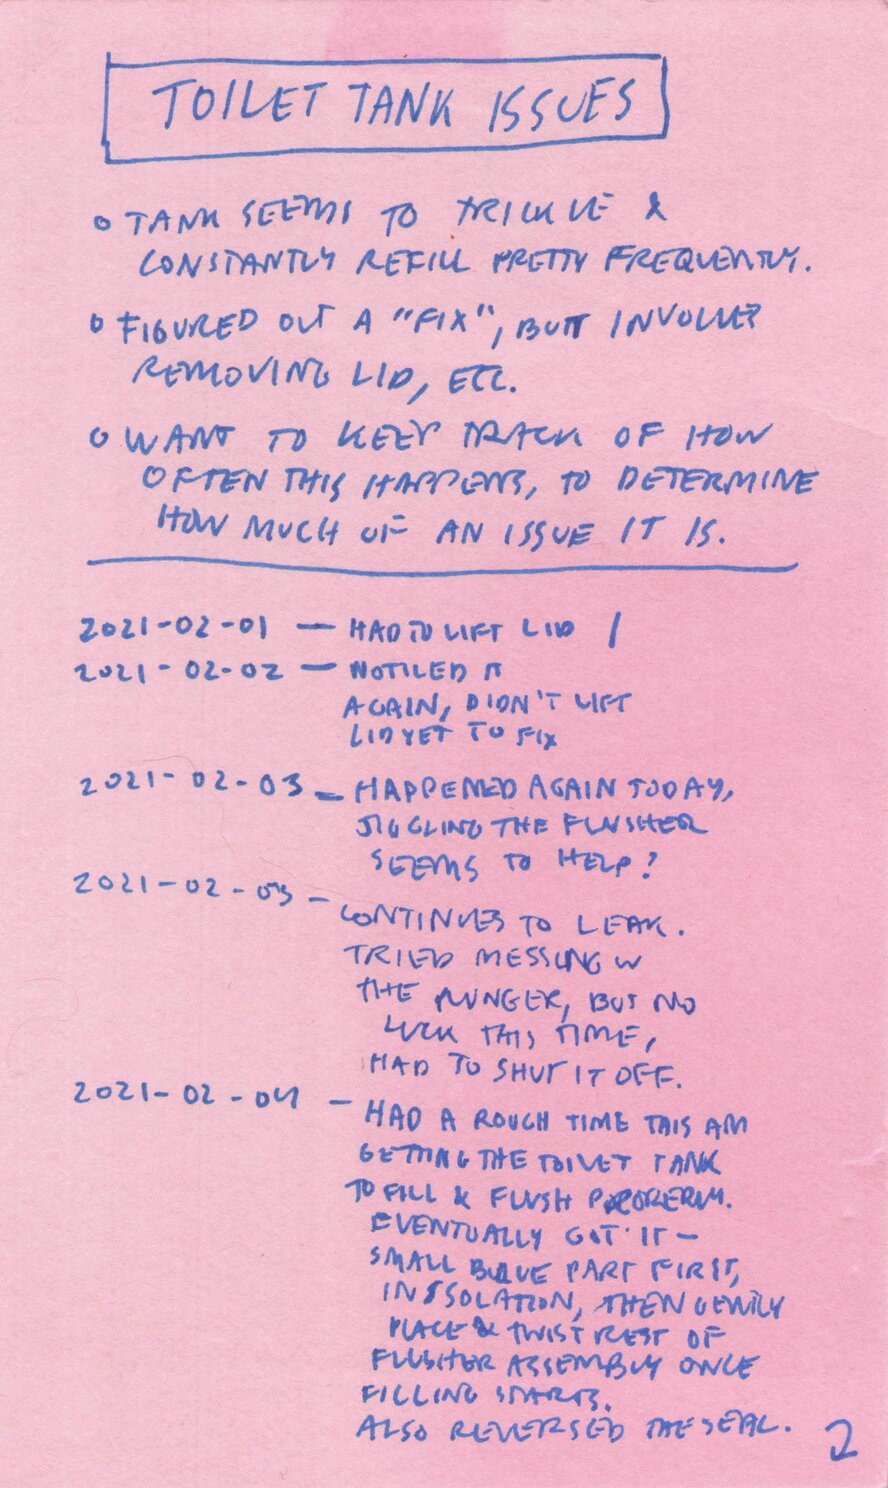 TOILET TANK ISSUES
o TANK SEEMS TO TRICKLE &
CONSTANTLY REFILL PRETTY FREQUENTLY.
o FIGURED OUT A "FIX", BUT INVOLVES
REMOVING LID, ETC.
o WANT TO KEEP TRACK OF HOW
OFTEN THIS HAPPENS, TO DETERMINE
HOW MUCH OF AN ISSUE IT IS.
2021-02-01 — HAD TO LIFT LID /
2021-02-02 — NOTICED IT
AGAIN, DIDN'T LIFT
LID YET TO FIX
2021-02-03 — HAPPENED AGAIN TODAY,
JIGGLING THE FLUSHER
SEEMS TO HELP?
2021-02-03 — CONTINUES TO LEAK.
TRIED MESSING W
THE PLUNGER, BUT NO
LUCK THIS TIME,
HAD TO SHUT IT OFF.
2021-02-04 — HAD A ROUGH TIME THIS AM
GETTING THE TOILET TANK
TO FILL & FLUSH PROPERLY.
EVENTUALLY GOT IT —
SMALL BLUE PART FIRST,
IN ISOLATION, THEN GENTLY
PLACE & TWIST REST OF
FLUSHER ASSEMBLY ONCE
FILLING STARTS.
ALSO REVERSED THE SEAL.
2